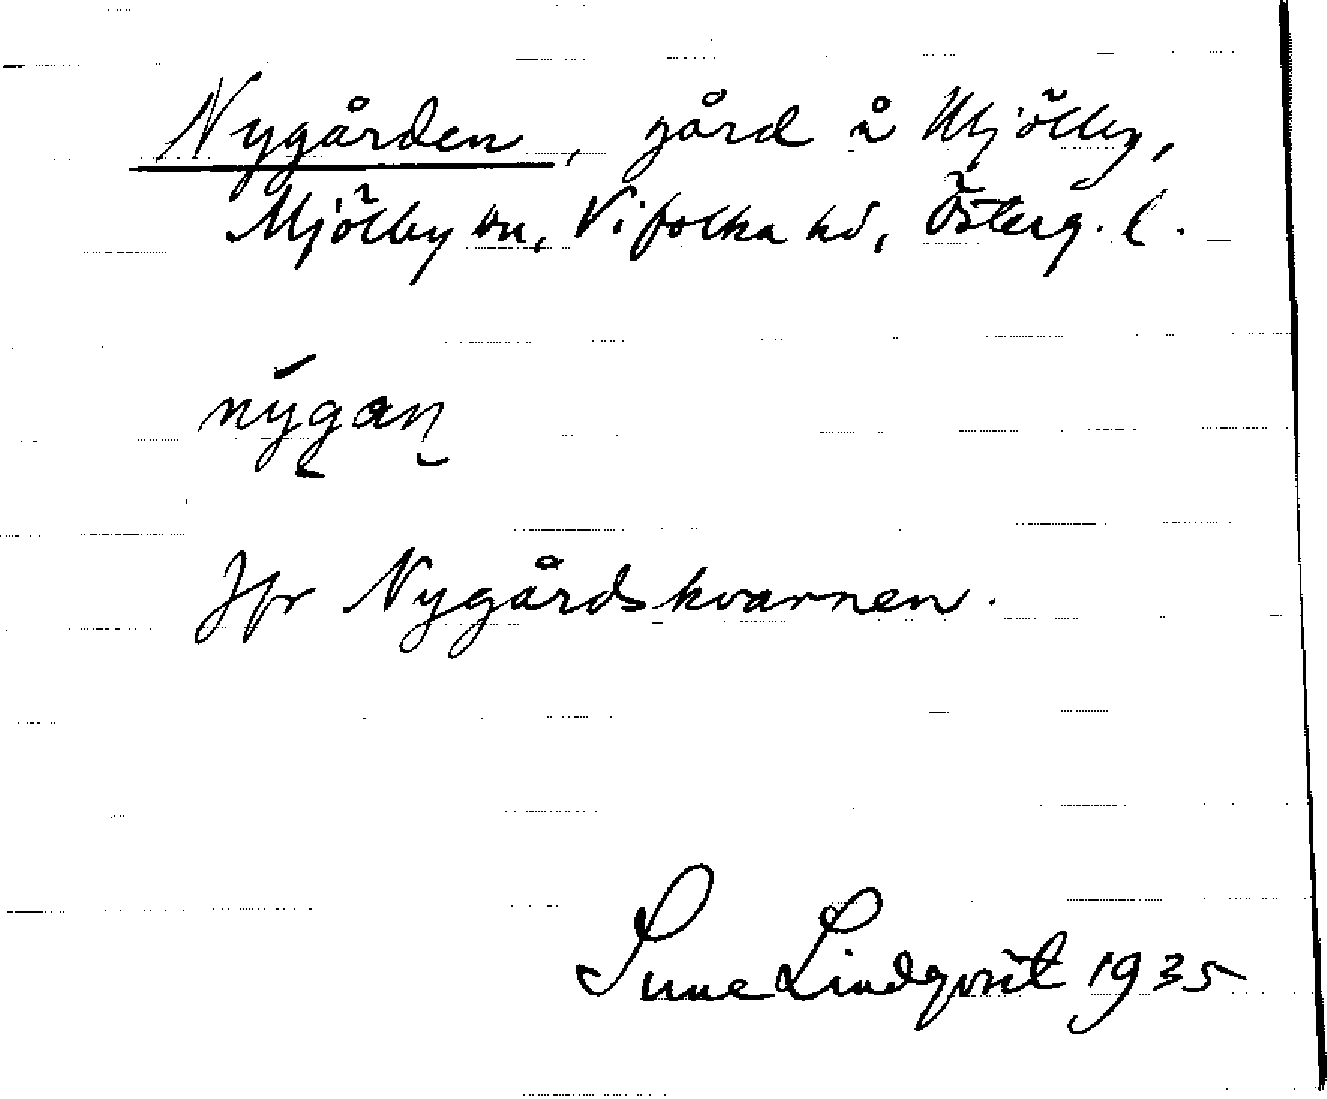 Nygården, gård i Mjölby,
Mjölby sn, Vifolka hd, Österg. l.
nýgan
Jfr Nygårdskvarnen.
Sune Lindqvist 1935